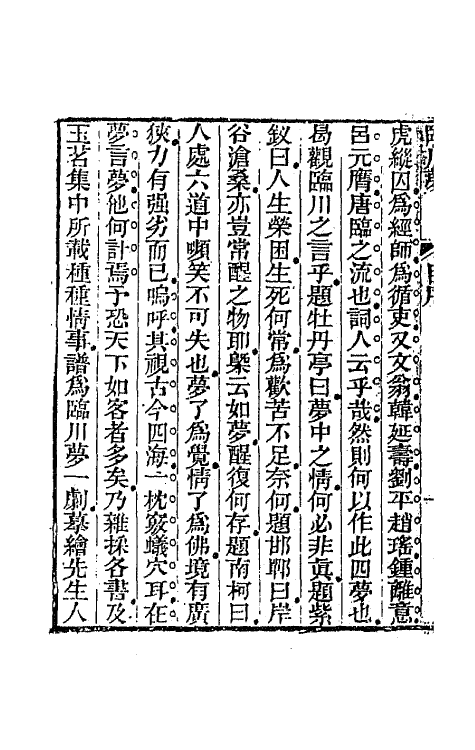 虎縱囚爲經師爲循吏又文翁韓延壽劉平趙瑤鍾離意
呂元膺唐臨之流也詞人云乎哉然則何以作此四夢也
曷觀臨川之言乎題牡丹亭曰夢中之情何必非眞題紫
釵曰人生榮困生死何常爲歡苦不足奈何題邯鄲曰岸
谷滄桑亦豈常醒之物耶槩云如夢醒復何存題南柯曰
人處六道中嚬笑不可失也夢了爲覺情了爲佛境有廣
狹力有强劣而已嗚呼其視古今四海一枕竅蟻穴耳在
夢言夢他何計焉予恐天下如客者多矣乃雜採各書及
玉茗集中所載種種情事譜爲臨川夢一劇摹繪先生人